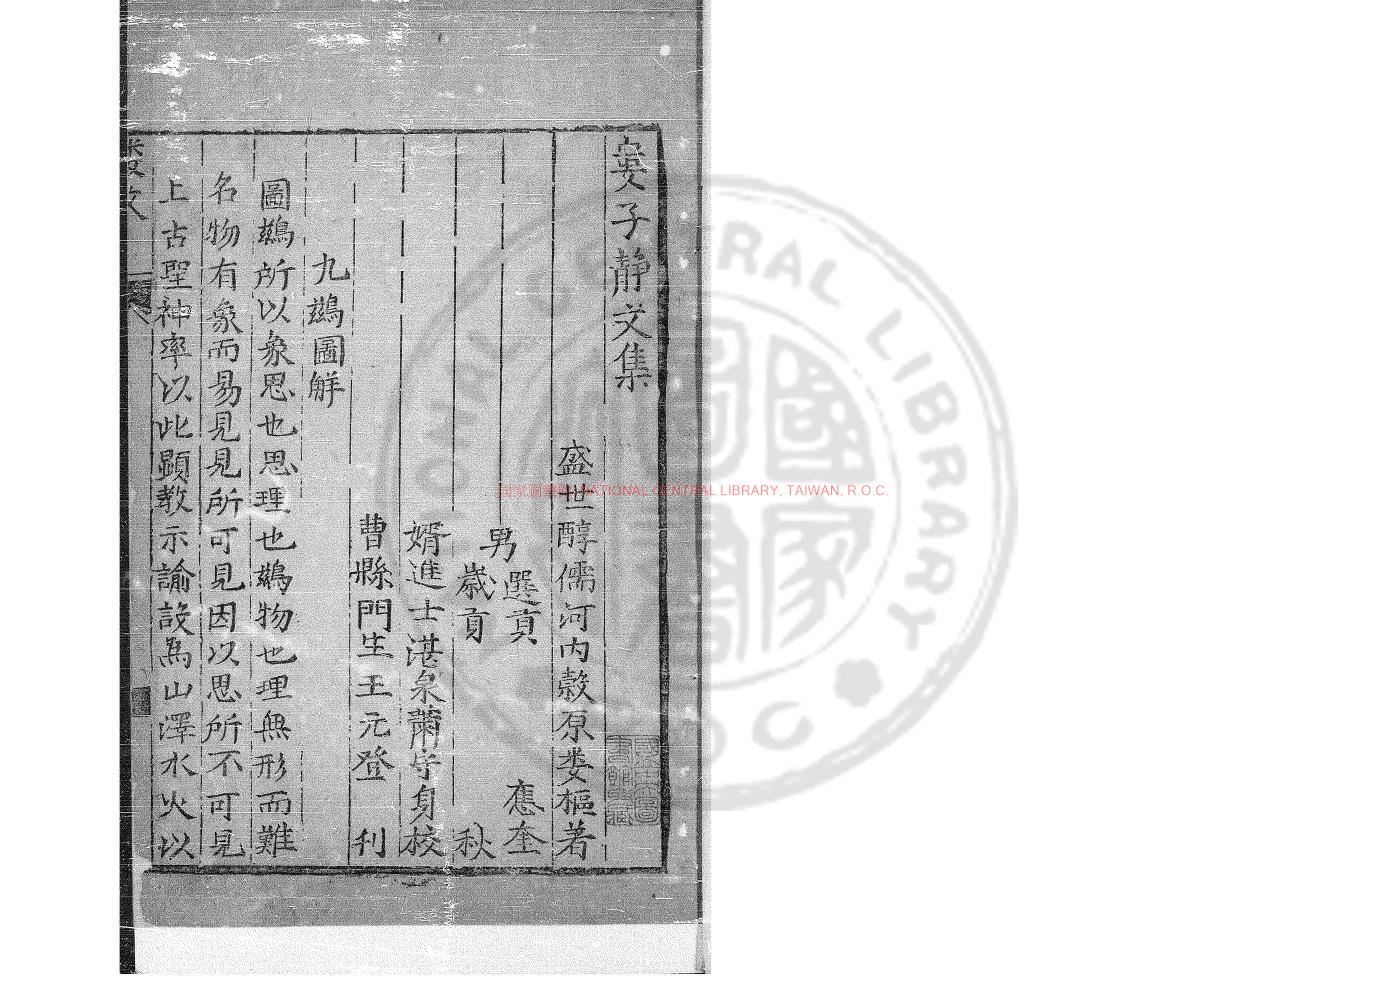 婁子靜文集
盛世醇儒河內穀原婁樞著
男
選貢
應奎
歲貢
秋
婿進士湛泉蕭守身校
曹縣門生王元登刊
九鷀圖解
圖鷀所以象思也思理也鷀物也理無形而難
名物有象而易見見所可見因以思所不可見
上古聖神率以此顯教示諭設為山澤水火以
NATIONAL CENTRAL LIBRARY
國家圖書館 NATIONAL CENTRAL LIBRARY, TAIWAN, R.O.C.